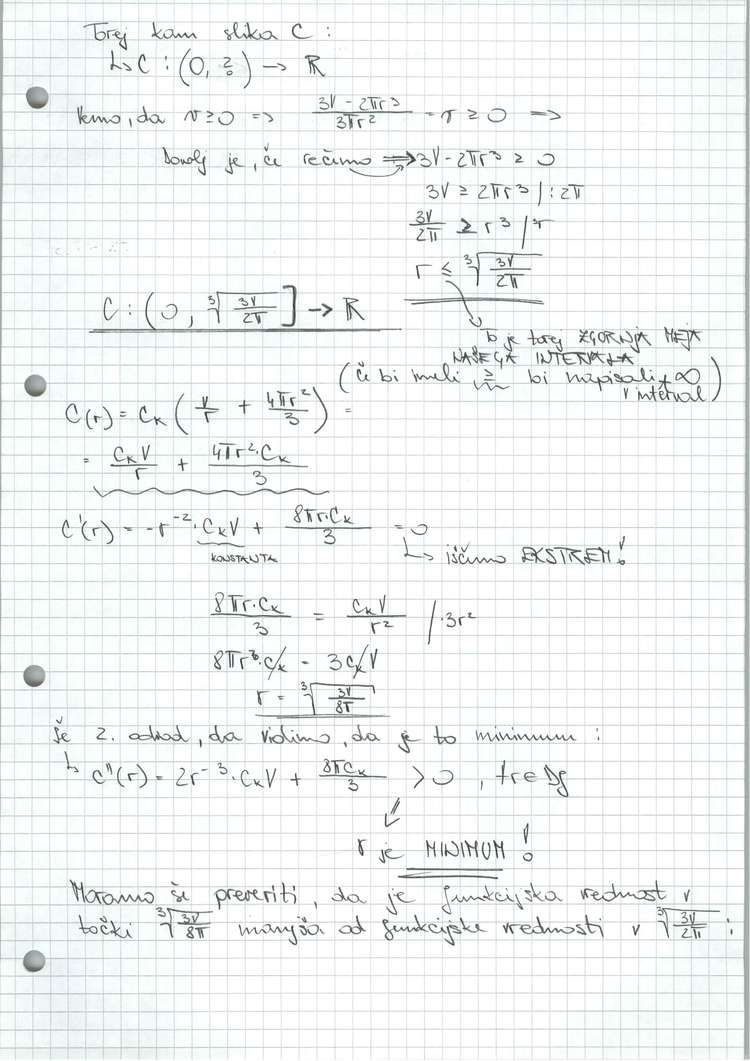 Torej kam slika C :
↳ C : (0, ?) → ℝ
Vemo, da v ≥ 0 => (3V - 2πr³)/(3πr²) - r ≥ 0 =>
Dovolj je, če rečimo => 3V - 2πr³ ≥ 0
3V ≥ 2πr³ / : 2π
3V/2π ≥ r³ / ∛
r ≤ ∛(3V/2π)
C : (0, ∛(3V/2π)] → ℝ
To je torej ZGORNJA MEJA
NAŠEGA INTERVALA
(če bi imeli ≥ bi napisali +∞
v interval)
C(r) = Cₖ (V/r + 4πr²/3) =
= CₖV/r + 4πr²·Cₖ/3
C'(r) = -r⁻² · CₖV + 8πr·Cₖ/3 = 0
KONSTANTA
↳ iščimo EKSTREM!
8πr·Cₖ/3 = CₖV/r² / ·3r²
8πr³·Cₖ = 3CₖV
r = ∛(3V/8π)
Še 2. odvod, da vidimo, da je to minimum :
↳ C''(r) = 2r⁻³·CₖV + 8πCₖ/3 > 0 , ∀r∈Df
r je MINIMUM!
Moramo še preveriti, da je funkcijska vrednost v
točki ∛(3V/8π) manjša od funkcijske vrednosti v ∛(3V/2π) :